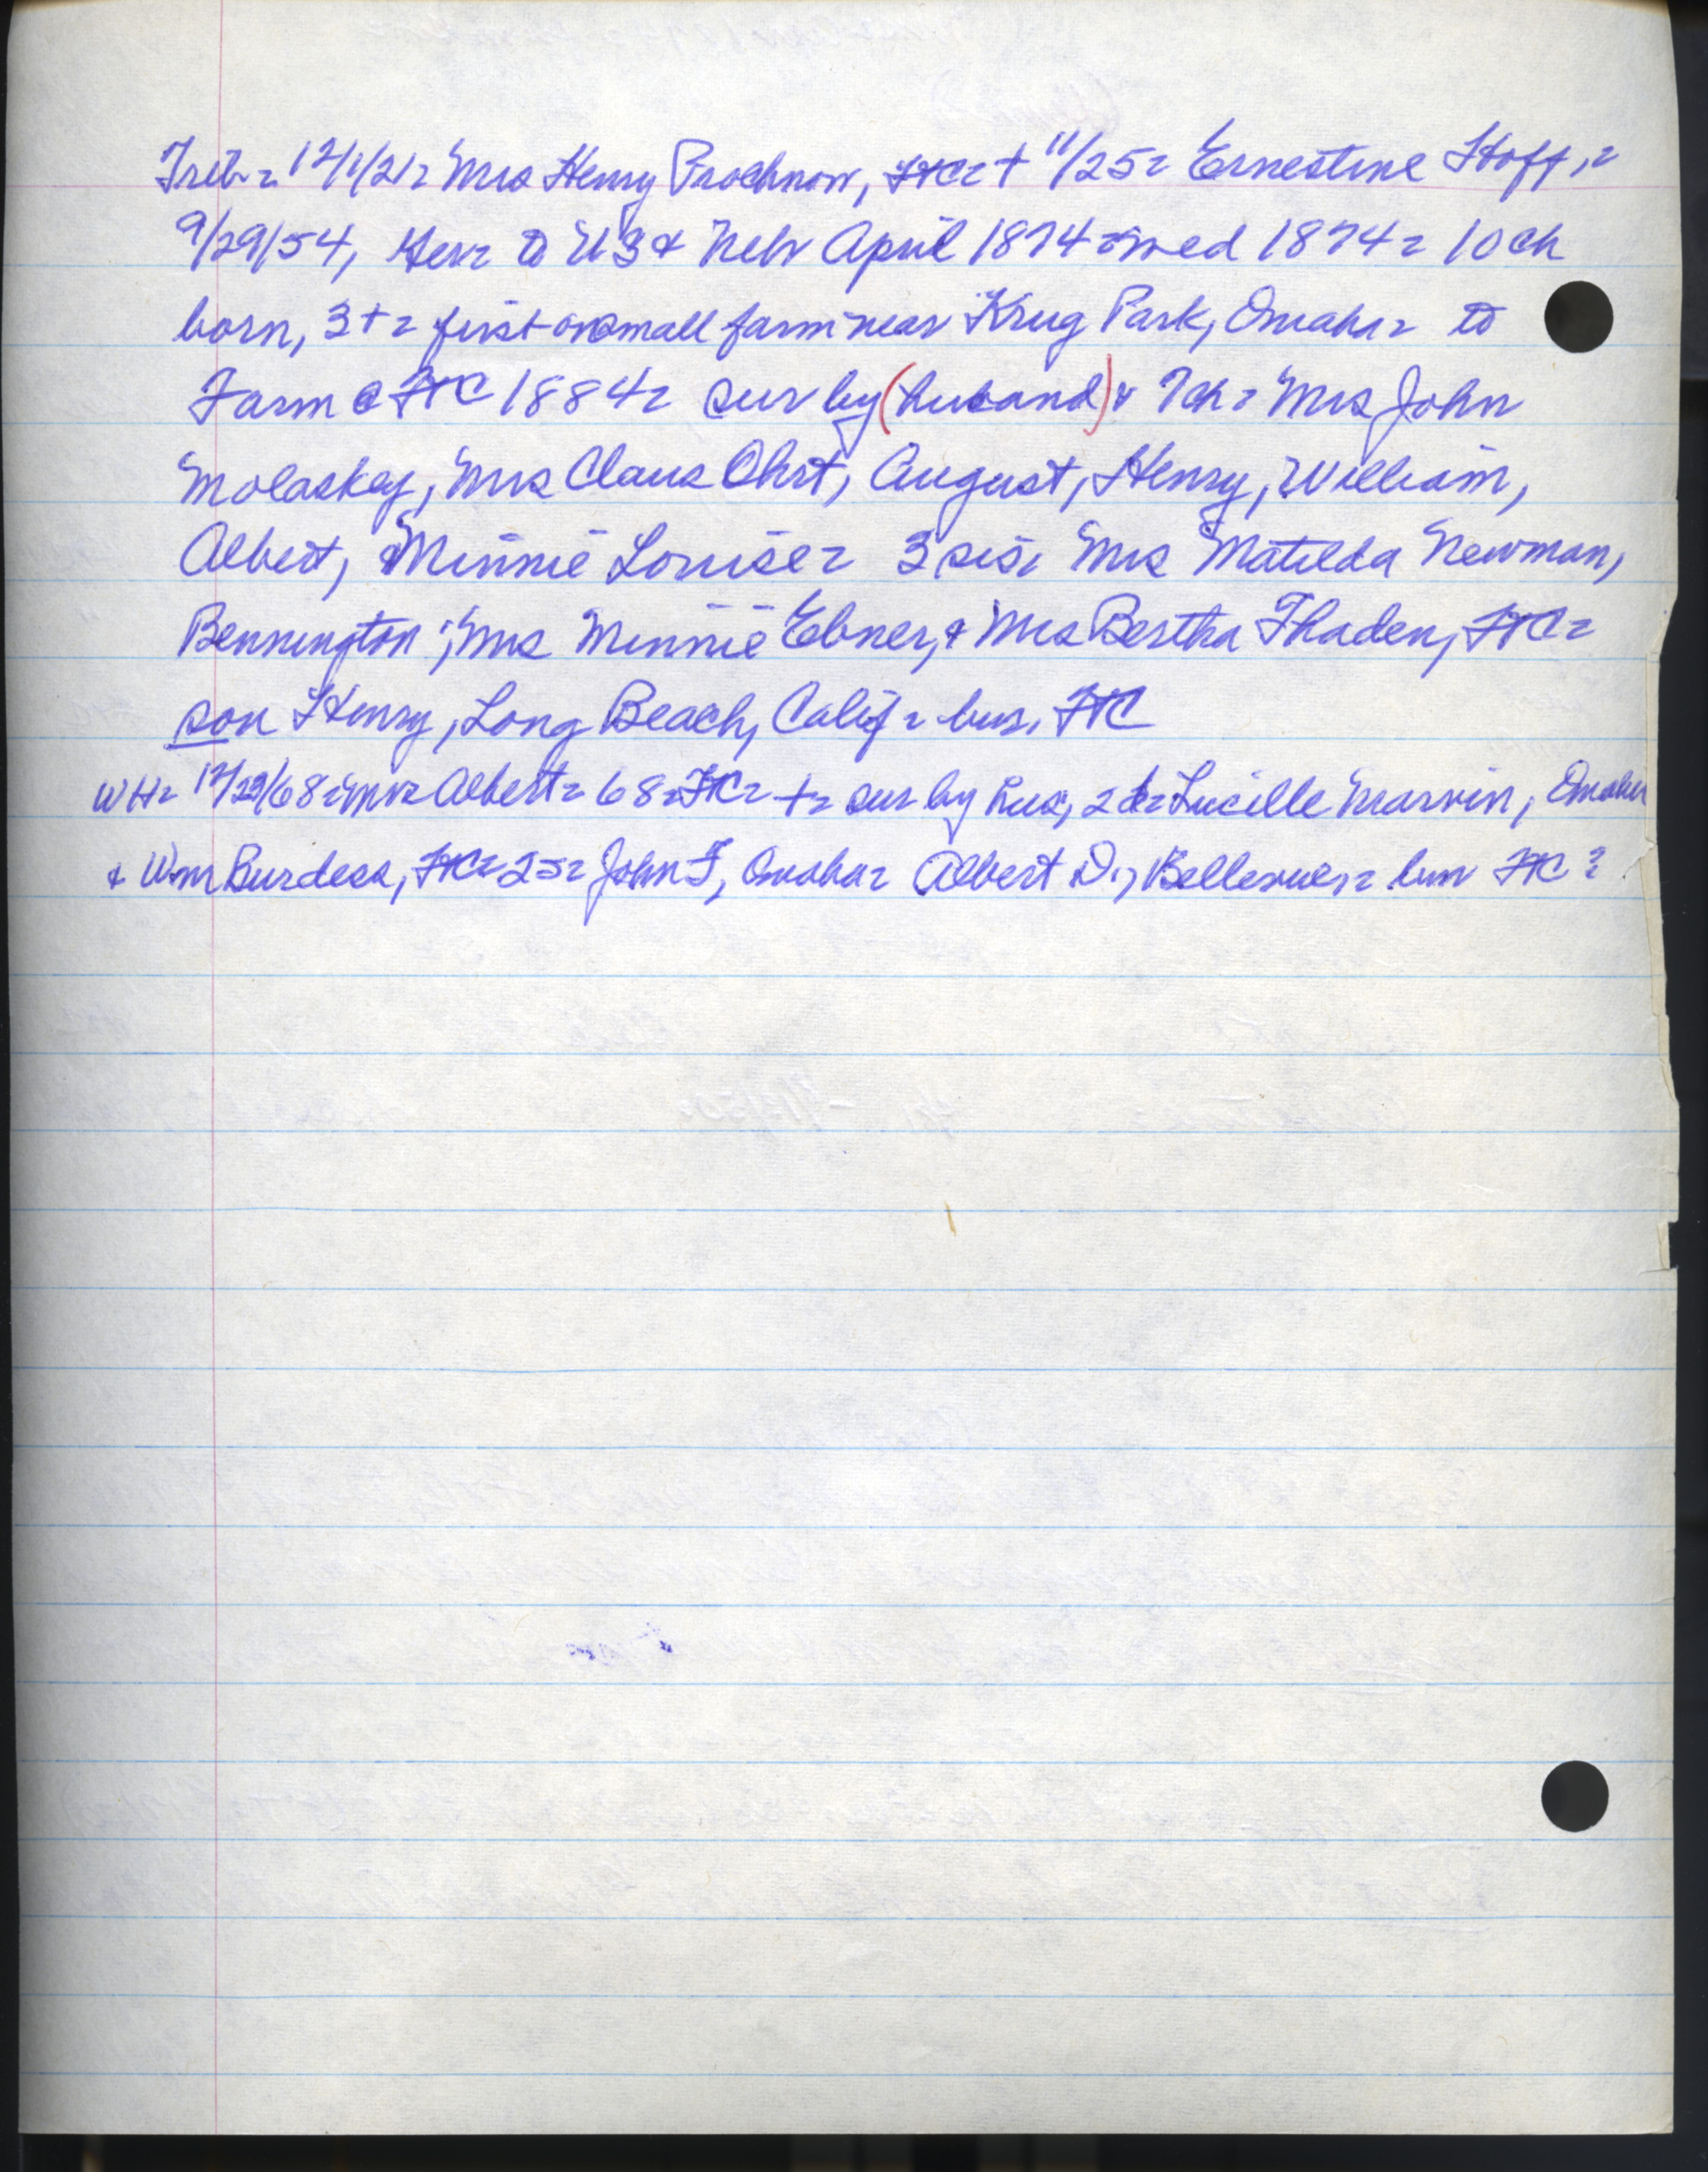 Trib = 12/1/21 = Mrs Henry Prochnow, FtC = + 11/25 = Ernestine Hoff, =
9/29/54, Ger = to US & Nebr April 1874 = med 1874 = 10 ch
born, 3 + = first on small farm near Krug Park, Omaha = to
Farm @ FtC 1884 = sur by (husband) & 7 ch = Mrs John
Molaskey, Mrs Claus Ohrt, August, Henry, William,
Albert, & Minnie Louise = 3 sis, Mrs Matilda Newman,
Bennington; Mrs Minnie Ebner, & Mrs Bertha Thaden, FtC =
son Henry, Long Beach, Calif = bur. FtC
WH = 12/29/68 = Mrs Albert = 68 = FtC = + = sur by hus, 2 d = Lucille Marvin, Omaha
& Wm Burdess, FtC = 2 s = John F, Omaha = Albert D., Bellevue, = bur FtC ?